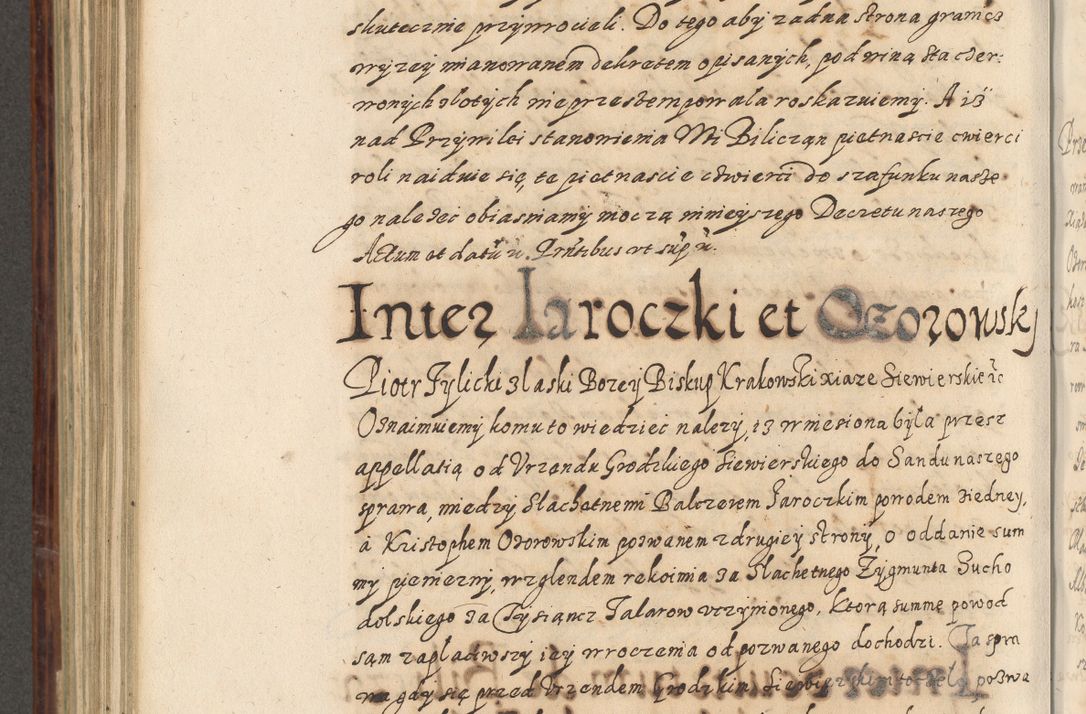 skutecznie przywrocieli. Do tego aby zadna strona granicz
wyzey mianowanem dekretem opisanych, pod winą sta czer:
wonych złotych nie przestempowala roskazuiemy. A iż
nad Przywilei stanowienia Mi Biliczan pietnascie cwierci
roli naiduie się, te pietnascie czwierci do szafunku nasze
go należeć obiasniamy moczą mnieyszego Decretu naszego
Actum et datū ū. Prntibus vt sup ū.
Inter Iaroczki et Ozorowskj
Piotr Tylicki z laski Bozey Biskup Krakowski xiaze Siewierskie ic
Oznaimuiemy komu to wiedzieć nalezy, iz wniesiona była przesz
appellatią od Vrzendu Grodzkiego Siewierskiego do Sandu naszego
sprawa, miedzy Slachetnemi Balczerem Jaroczkim powodem ziedney,
á Kristophem Ozorowskim pozwanem z drugiey strony, o oddanie sum
my pieniezny, wzglendem rekoimia za Slachetnego Zygmunta Sucho
dolskiego za Tysiancz Talarow vczynionego, Ktorą summę powod
sam zapłaciwszy iey wroczenia od pozwanego dochodzi. Ta spra
wa gdy się przed Vrzendem Grodzkim Siewierskim toczela, pozwa